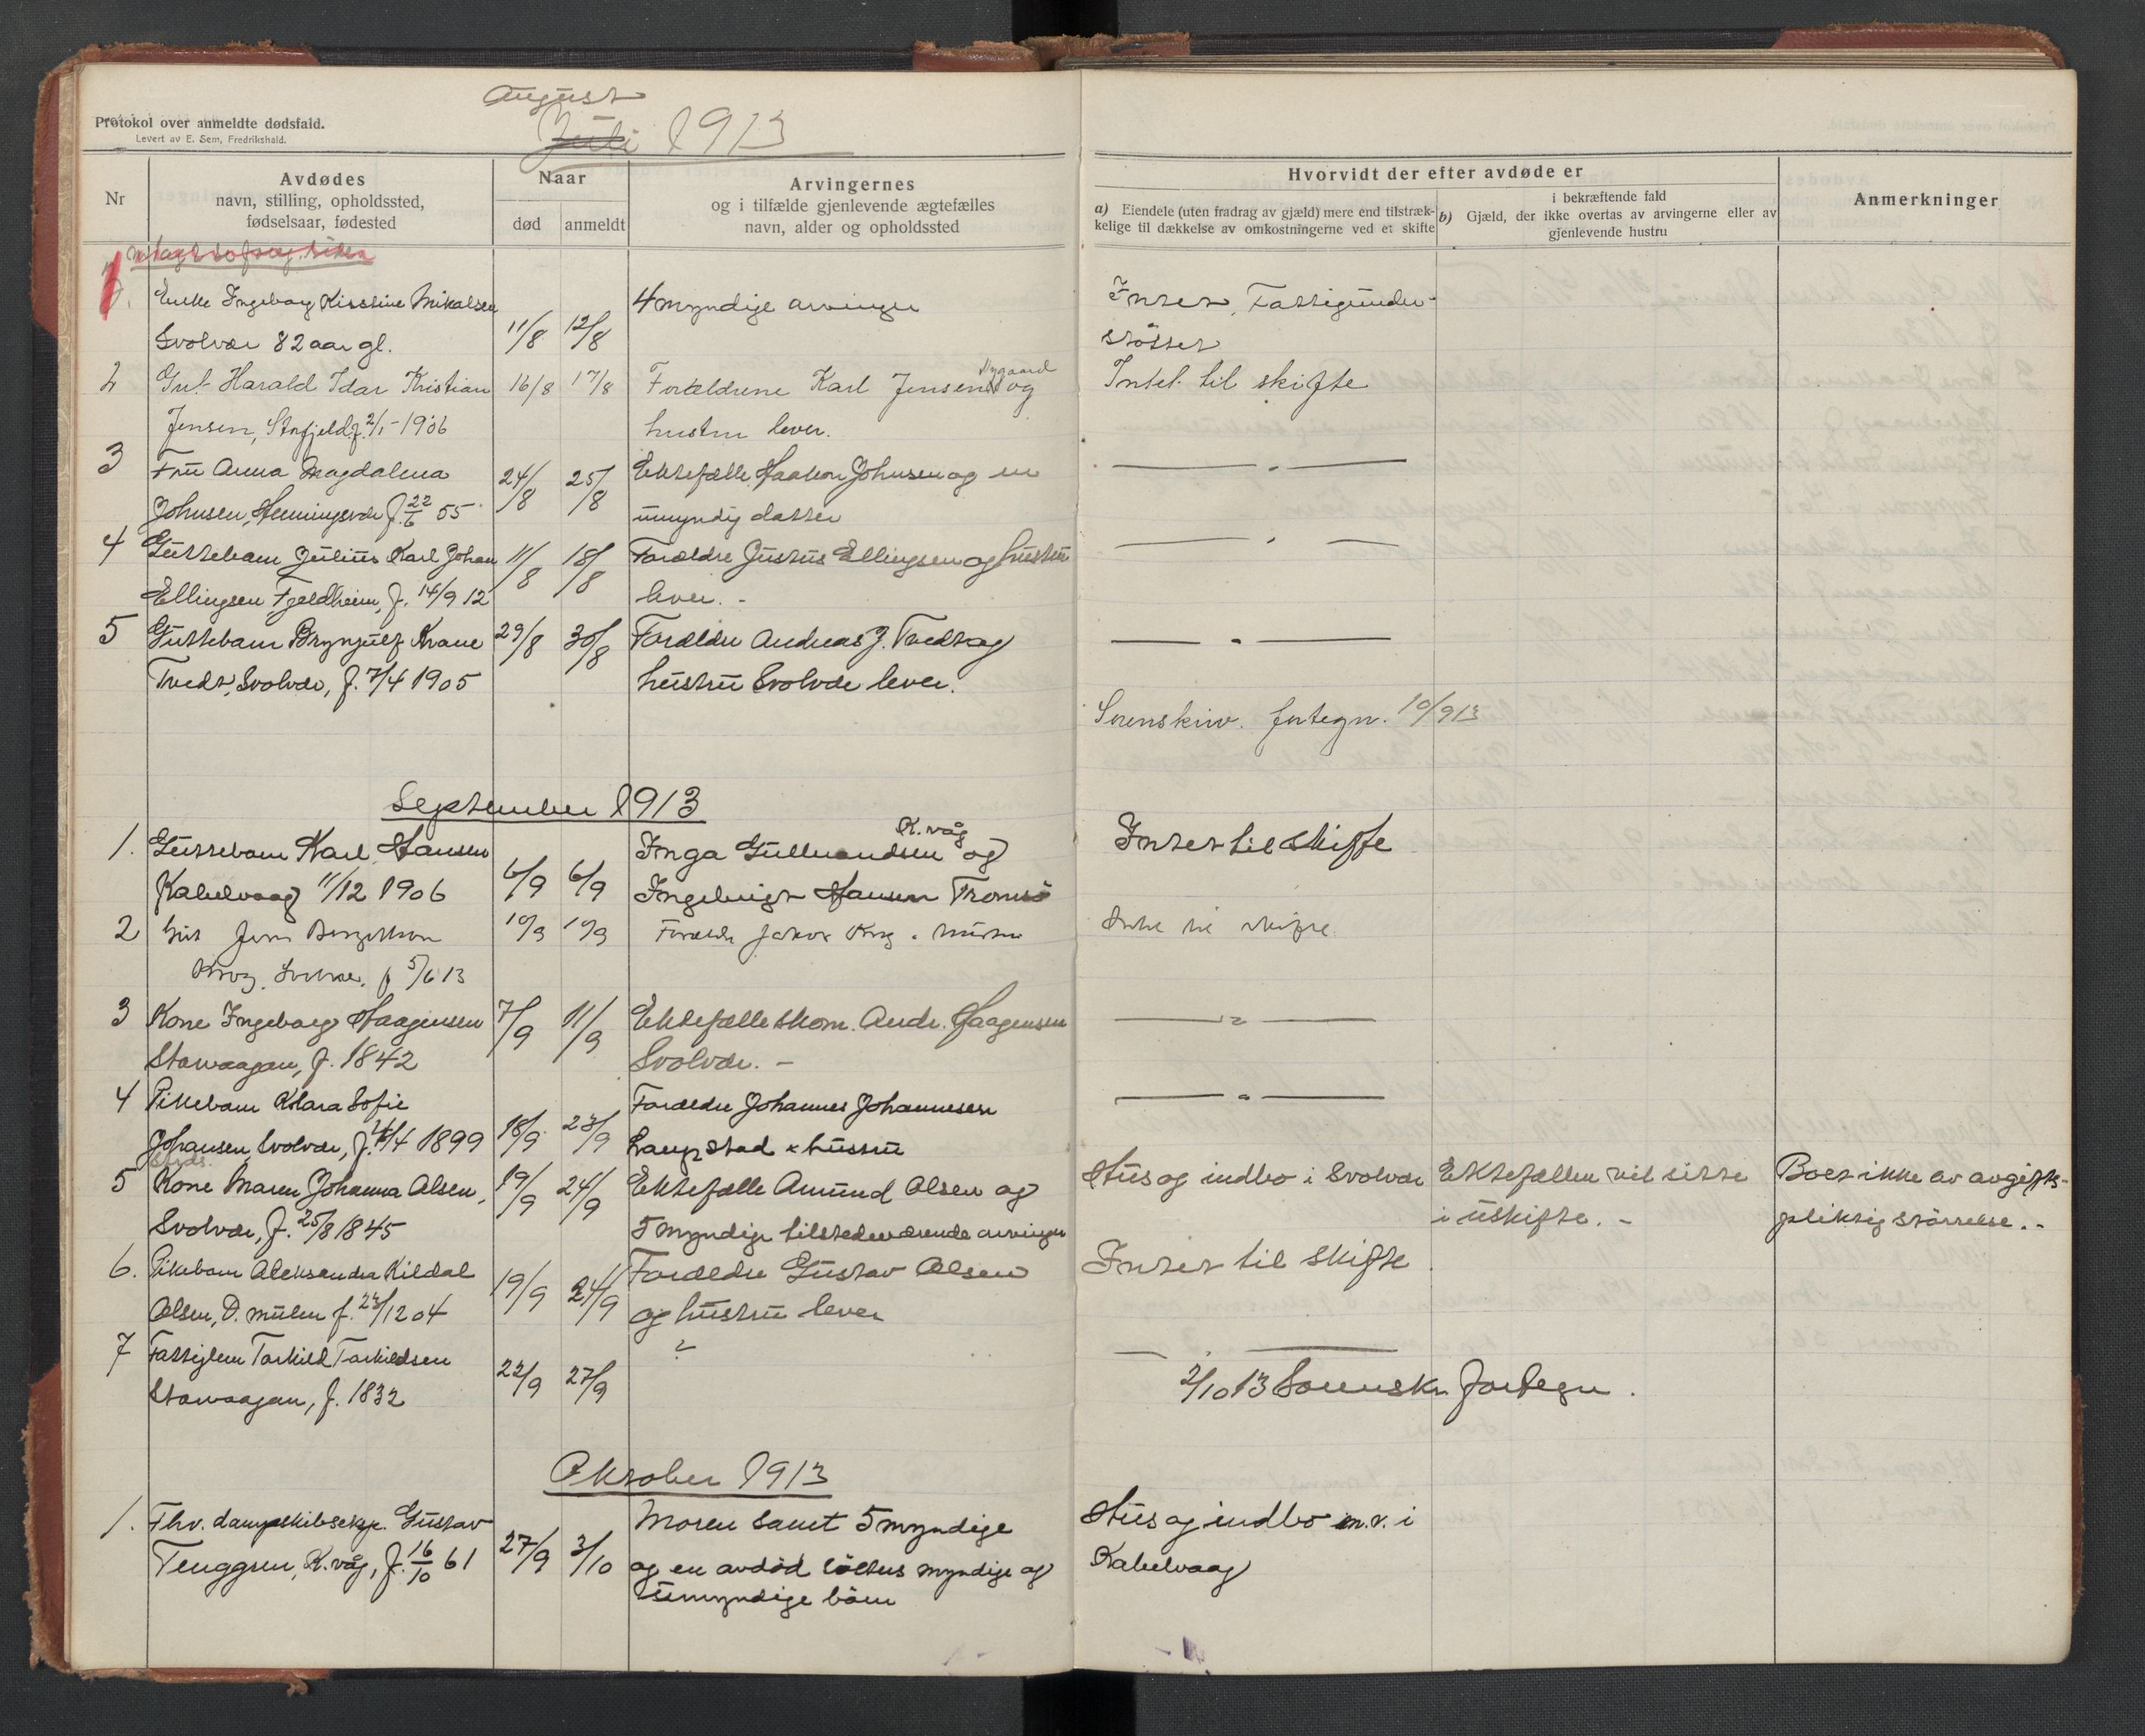 Protokol over anmeldte dødsfald.
Levert av E. Sem, Fredrikshald.
August
Juli 1913
Nr
Avdødes
navn, stilling, opholdssted,
fødselsaar, fødested
Naar
død
anmeldt
Arvingernes
og i tilfælde gjenlevende ægtefælles
navn, alder og opholdssted
Hvorvidt der efter avdøde er
a) Eiendele (uten fradrag av gjæld) mere end tilstræk-
kelige til dækkelse av omkostningerne ved et skifte
i bekræftende fald
b) Gjæld, der ikke overtas av arvingerne eller av
gjenlevende hustru
Anmerkninger
1. Enke Ingeborg Kirstine Mikalsen 4 myndige arvinger Intet, Fattigunder-
Svolvær 82 aar gl. 11/8 12/8 støttet
2 Gut Harald Idar Kristian 16/8 17/8 Forældrene Karl Jensen Nygaard og Intet til skifte
Jensen, Storfjeld f. 2/1-1906 hustru lever.
3 Fru Anna Magdalena 24/8 25/8 Ektefælle Haakon Johnsen og en — „ —
Johnsen, Henningsvær f. 22/6 55 umyndig datter
4 Guttebarn Julius Karl Johan 11/8 18/8 Forældre Justus Ellingsen og hustru — „ —
Ellingsen Fjeldheim, f. 14/9 12 lever. -
5 Guttebarn Brynjulf Krane 29/8 30/8 Forældre Andreas J. Tvedt og — „ —
Tvedt, Svolvær, f. 7/4 1905 hustru Svolvær lever.
Sorenskriv. fortegn. 10/9 13
September 1913
1. Guttebarn Karl Hansen Inga Gulbrandsen K.våg og Intet til skifte
Kabelvaag 11/12 1906 6/9 6/9 Ingebrigt Hansen Tromsö
2 Gut Jens 10/9 10/9 Forældre Jakob Krog & hustru Intet til skifte
Krog, Svolvær, f 5/6 13
3 Kone Ingeborg Haagensen 7/9 11/9 Ektefælle skom. Andr. Haagensen — „ —
Storvaagan, f. 1842 Svolvær. -
4 Pikebarn Klara Sofie Forældre Johannes Johannesen — „ —
Johansen, Svolvær, f. /4 1899 18/9 23/9 Laupstad & hustru
5 Kone Maren Johanna Olsen, 19/9 24/9 Ektefælle Amund Olsen og Hus og indbo i Svolvær Ektefællen vil sitte Boet ikke av avgifts-
Svolvær, f. 25/8 1845 5 myndige tilstedeværende arvinger i uskifte. - pliktig störrelse. -
6. Pikebarn Aleksandra Kildal 19/9 24/9 Forældre Gustav Olsen Intet til skifte
Olsen, Ø. mulen f. 23/12 04 og hustru lever
7 Fattiglem Torkild Torkildsen 22/9 27/9 ? — „ —
Storvaagan, f. 1832 2/10 13 Sorenskr. fortegn.
Oktober 1913
1. Fhv. dampskibseksp. Gustav Moren samt 5 myndige Hus og indbo m.v. i
Tenggren, K.våg, f. 16/10 61 27/9 3/10 og en avdöd söskens myndige og Kabelvaag
umyndige börn